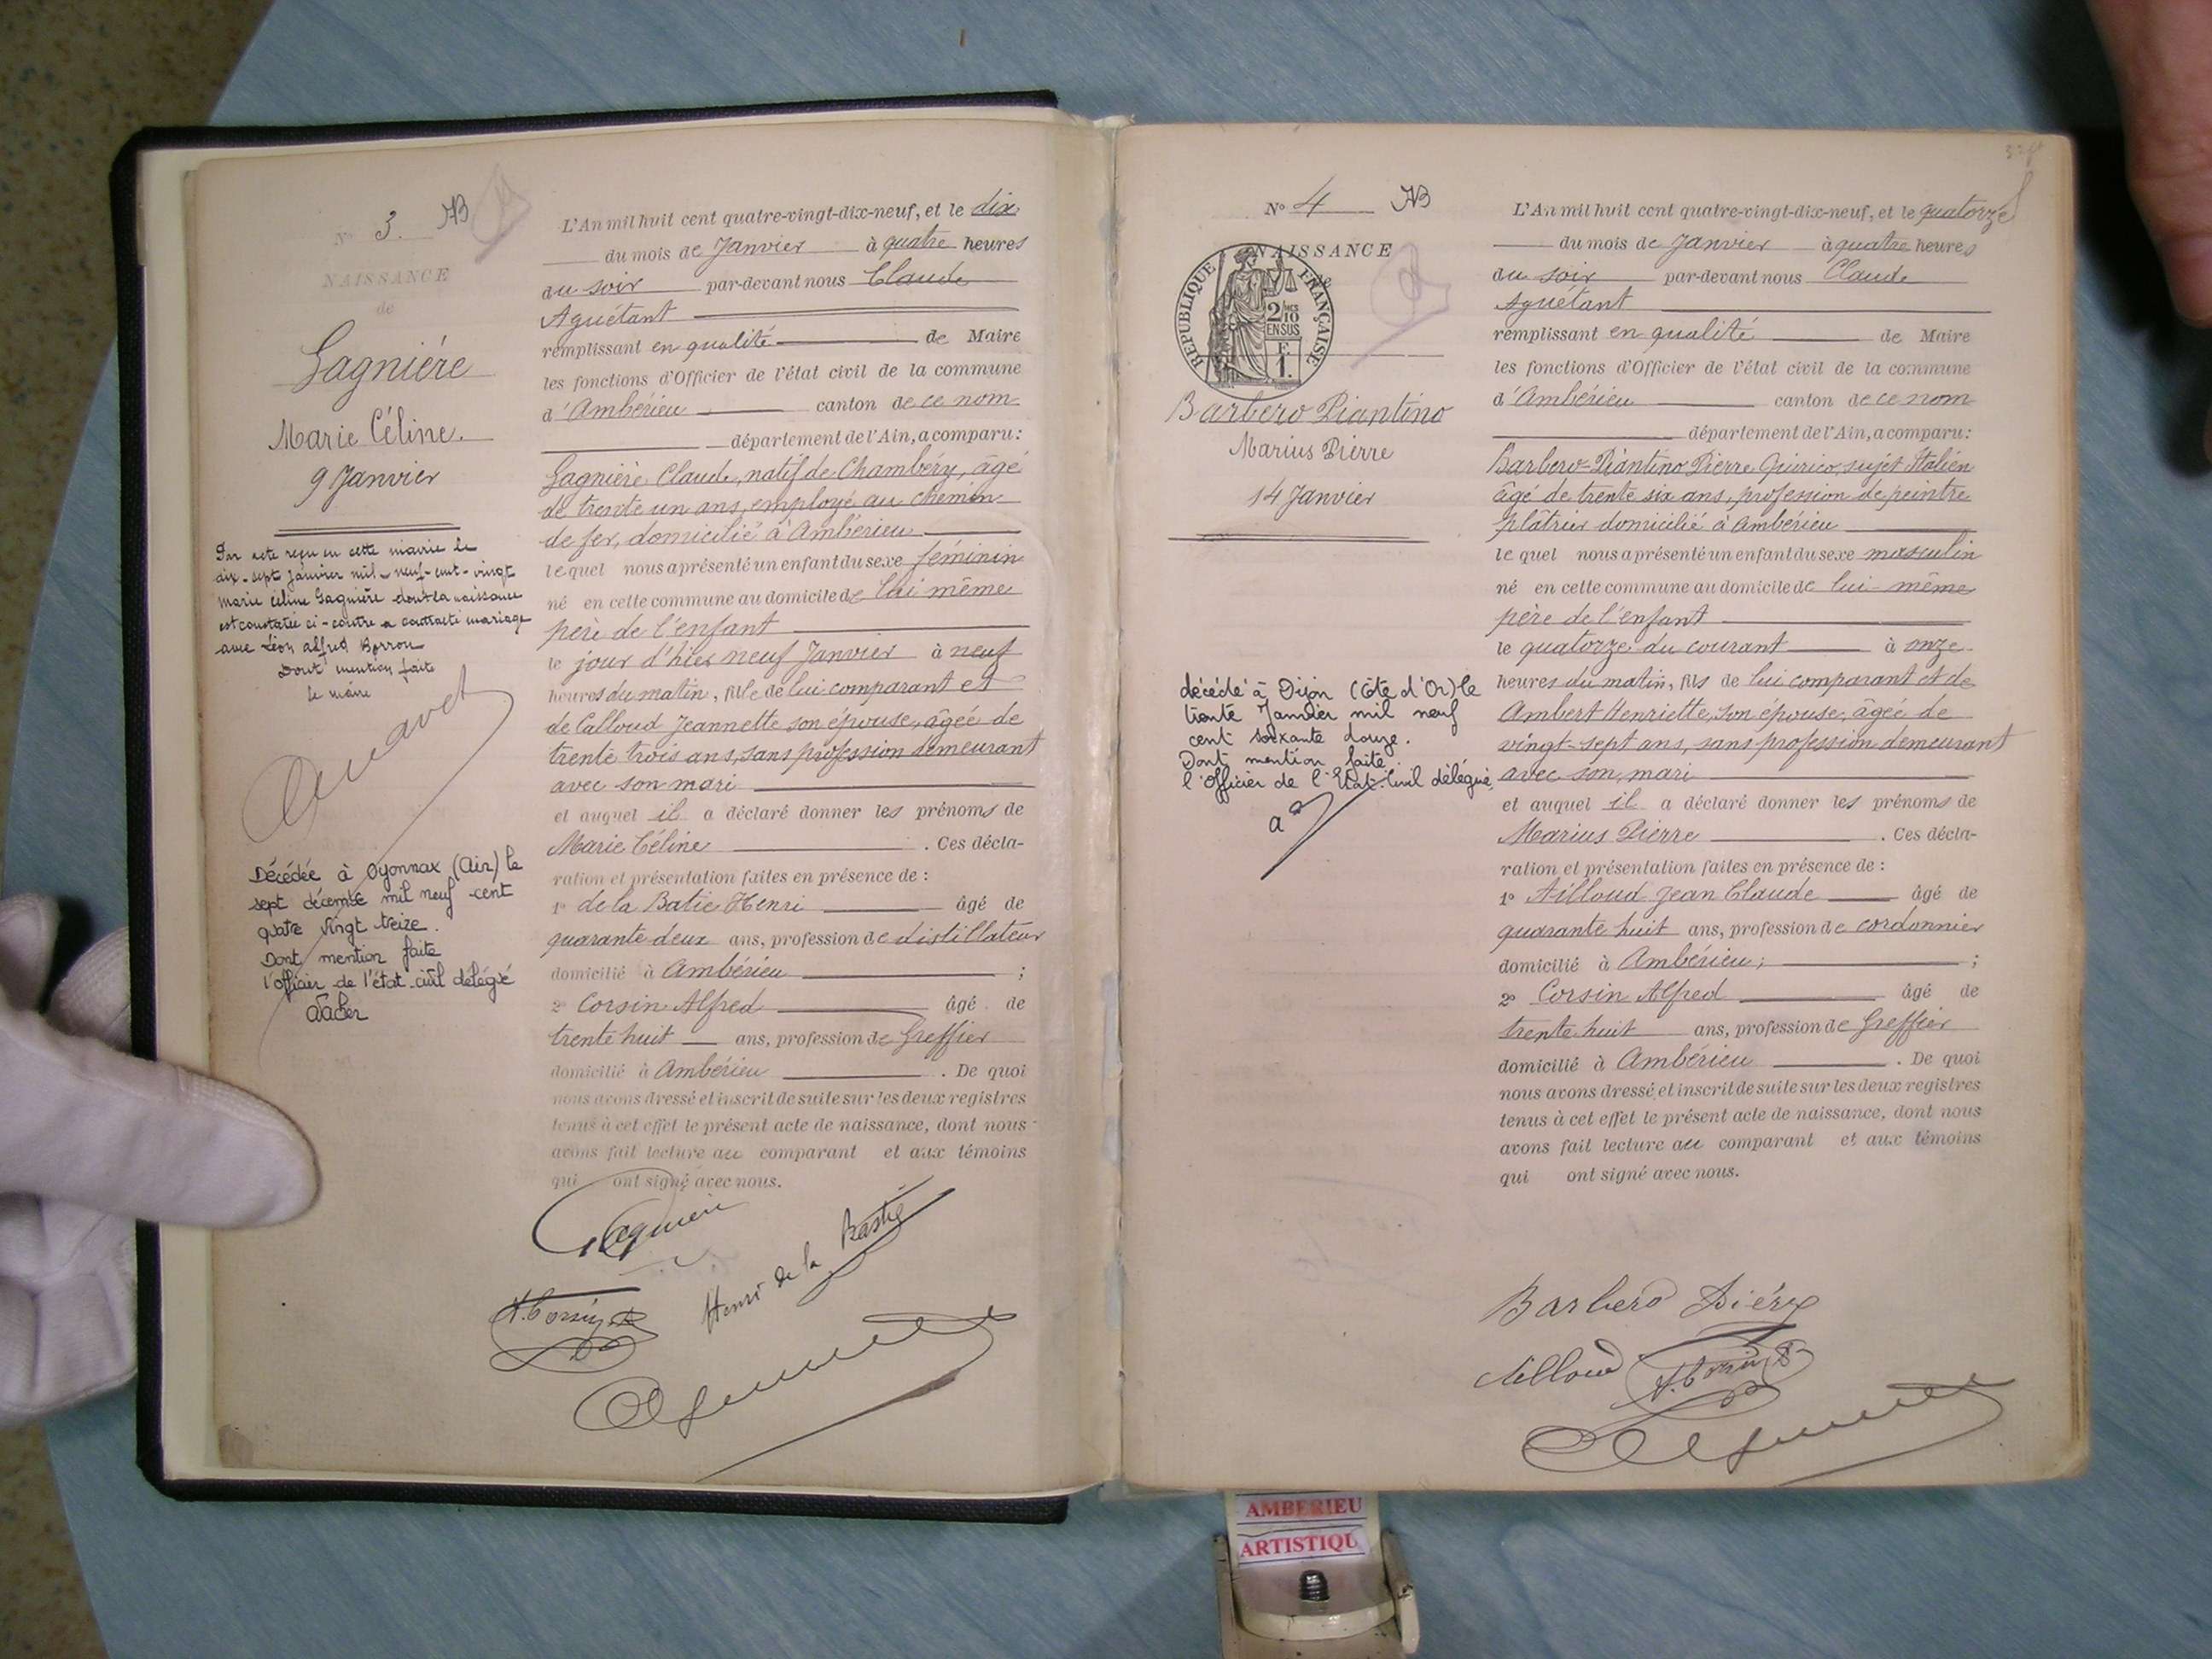 N° 3. AB
NAISSANCE
de
Gagnière
Marie Céline.
9 Janvier
Par acte reçu en cette mairie le
dix-sept Janvier mil-neuf-cent-vingt
Marie Céline Gagnière dont la naissance
est constatée ci-contre a contracté mariage
avec Léon Alfred
Dont mention faite
le maire
Décédée à Oyonnax (Ain) le
sept décembre mil neuf cent
quatre vingt treize.
Dont mention faite
l'officier de l'état-civil délégué
L'An mil huit cent quatre-vingt-dix-neuf, et le dix
du mois de Janvier à quatre heures
du soir par-devant nous Claude
Aguétant
remplissant en qualité de Maire
les fonctions d'Officier de l'état civil de la commune
d'Ambérieu canton de ce nom
département de l'Ain, a comparu:
Gagnière Claude, natif de Chambéry, âgé
de trente un ans, employé au chemin
de fer, domicilié à Ambérieu
lequel nous a présenté un enfant du sexe féminin
né en cette commune au domicile de lui même
père de l'enfant
le jour d'hier neuf Janvier à neuf
heures du matin, fille de lui comparant et
de Calloud Jeannette son épouse, âgée de
trente trois ans, sans profession demeurant
avec son mari
et auquel il a déclaré donner les prénoms de
Marie Céline . Ces décla-
ration et présentation faites en présence de :
1° de la Batie Henri âgé de
quarante deux ans, profession de distillateur
domicilié à Ambérieu ;
2° Corsin Alfred âgé de
trente huit ans, profession de Greffier
domicilié à Ambérieu . De quoi
nous avons dressé et inscrit de suite sur les deux registres
tenus à cet effet le présent acte de naissance, dont nous
avons fait lecture au comparant et aux témoins
qui ont signé avec nous.
Gagnière
Henri de la Bastie
A. Corsin
Aguétant
N° 4 AB
NAISSANCE
de
REPUBLIQUE FRANÇAISE
2/10
EN SUS
F.
1.
Barbero Piantino
Marius Pierre
14 Janvier
décédé à Dijon (Côte d'Or) le
trente Janvier mil neuf
cent soixante douze.
Dont mention faite.
l'Officier de l'Etat-Civil délégué,
L'An mil huit cent quatre-vingt-dix-neuf, et le quatorze
du mois de Janvier à quatre heures
du soir par-devant nous Claude
Aguétant
remplissant en qualité de Maire
les fonctions d'Officier de l'état civil de la commune
d'Ambérieu canton de ce nom
département de l'Ain, a comparu:
Barbero-Piantino Pierre sujet Italien
âgé de trente six ans, profession de peintre
plâtrier domicilié à Ambérieu
le quel nous a présenté un enfant du sexe masculin
né en cette commune au domicile de lui-même
père de l'enfant
le quatorze du courant à onze
heures du matin, fils de lui comparant et de
Ambert Henriette, son épouse, âgée de
vingt-sept ans, sans profession demeurant
avec son mari
et auquel il a déclaré donner les prénoms de
Marius Pierre . Ces décla-
ration et présentation faites en présence de :
1° Ailloud Jean Claude âgé de
quarante huit ans, profession de cordonnier
domicilié à Ambérieu; ;
2° Corsin Alfred âgé de
trente huit ans, profession de Greffier
domicilié à Ambérieu . De quoi
nous avons dressé et inscrit de suite sur les deux registres
tenus à cet effet le présent acte de naissance, dont nous
avons fait lecture au comparant et aux témoins
qui ont signé avec nous.
Barbero Piérre
Ailloud
A. Corsin
Aguétant
AMBERIEU
ARTISTIQU